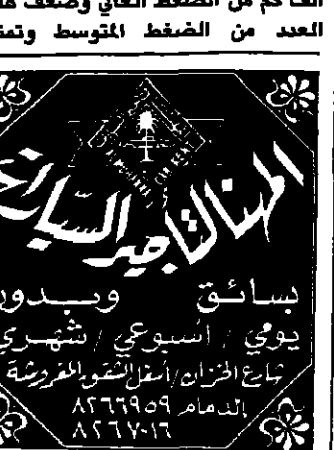 العدد من الضغط المتوسط وتمتد
المهنا لتأجير السيارات
بسائق وبدون
يومي / اسبوعي / شهري
شارع الخزان / أسفل الشقق المفروشة
الدمام ٨٢٦٦٩٥٩
٨٢٦٧٠١٦